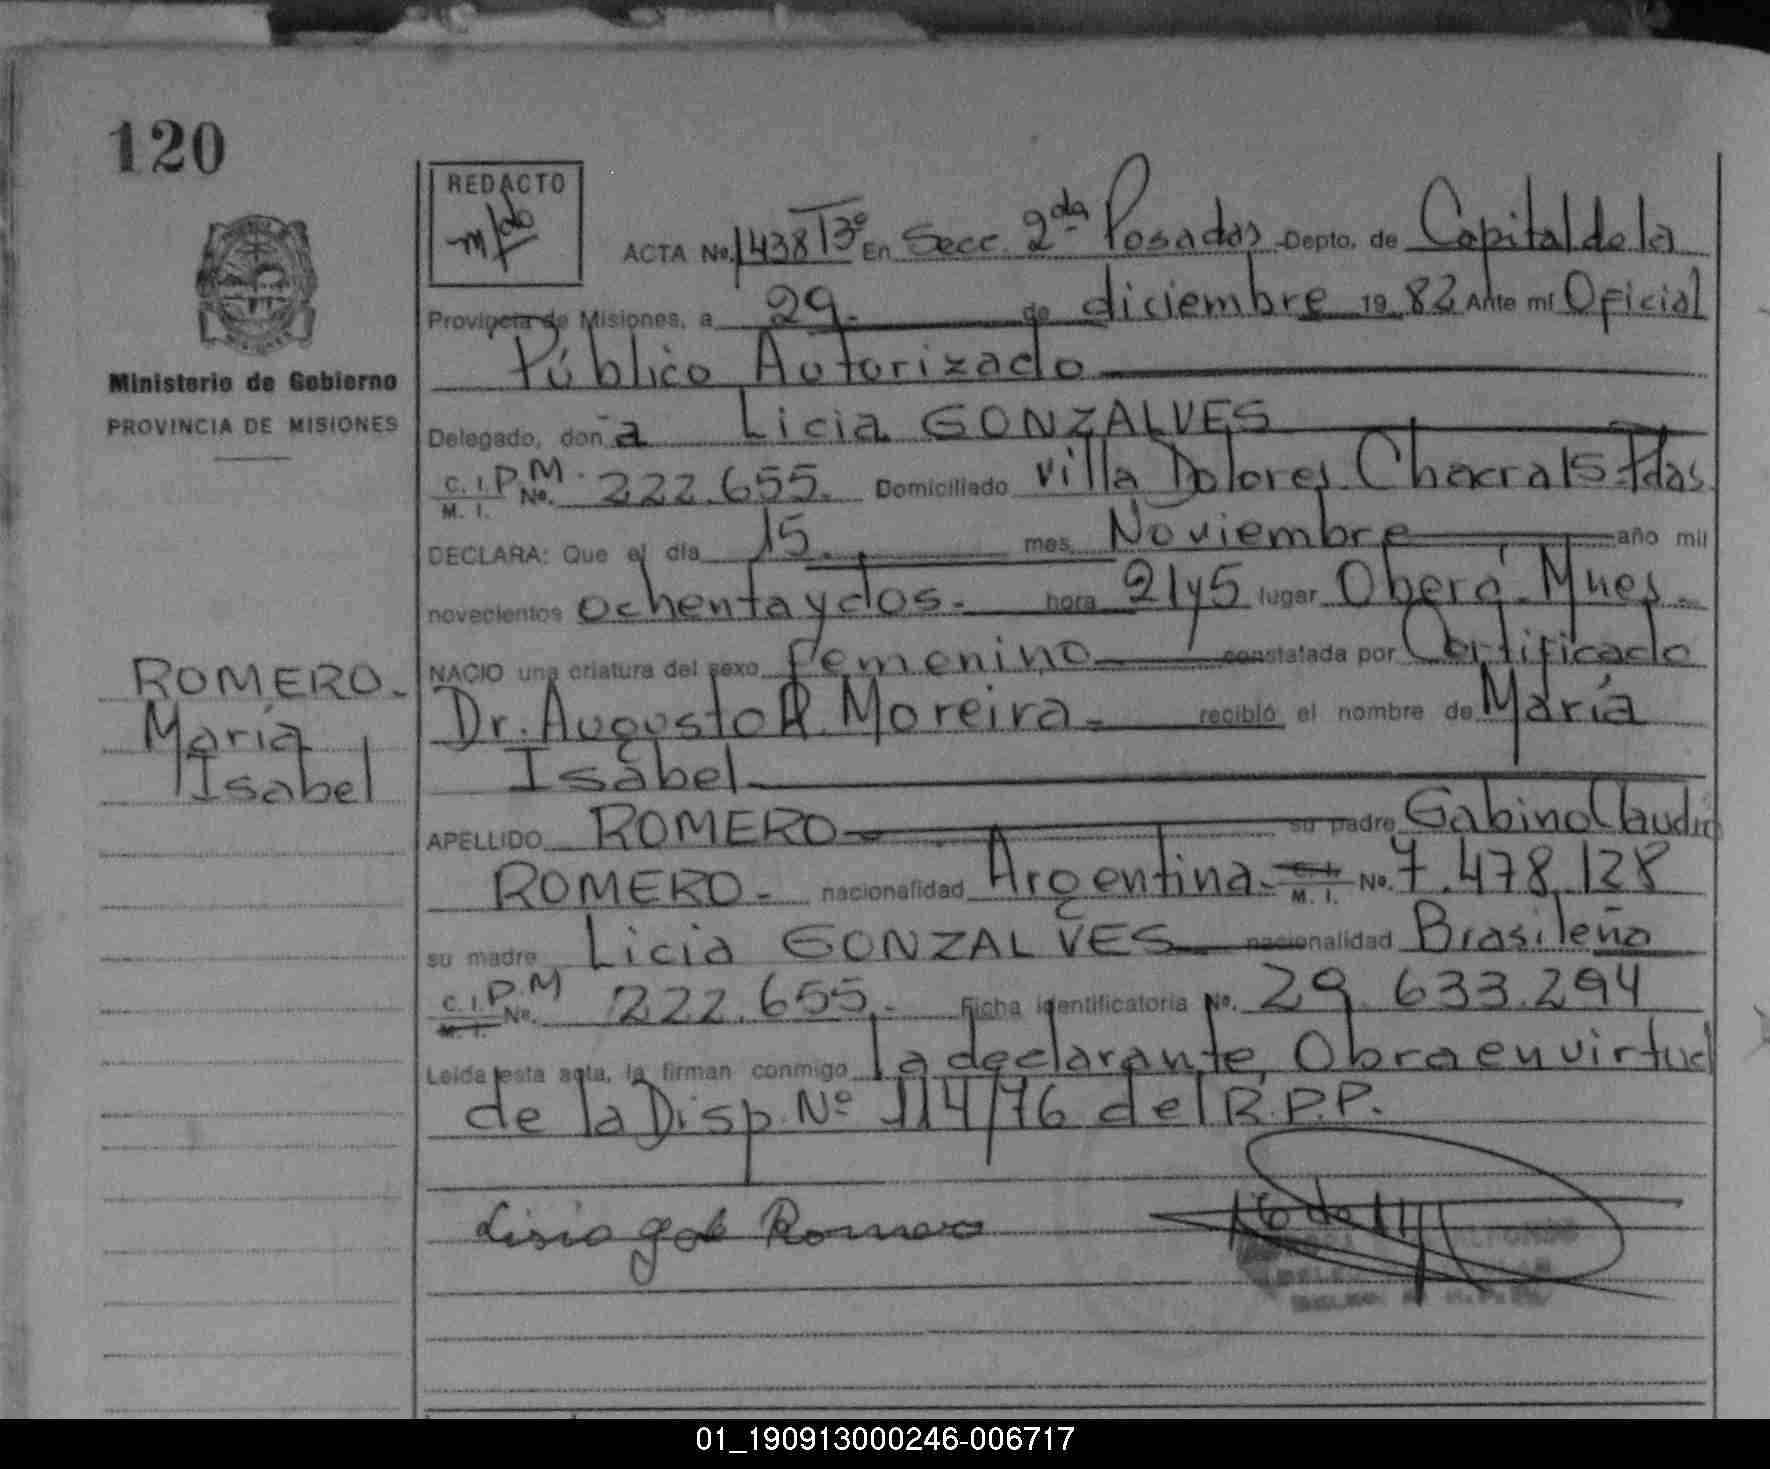 120
REDACTO
ACTA No. 1438 T3º En Secc. 2da Posadas Depto. de Capital de la
Provincia de Misiones, a 29. de diciembre 19 82 Ante mí Oficial
Público Autorizado
Ministerio de Gobierno
PROVINCIA DE MISIONES
Delegado, don a Licia GONZALVES
C. I. P.M. No. 222.655. Domiciliado Villa Dolores Chacra 15-Pdas.
M. I.
DECLARA: Que el día 15. mes Noviembre año mil
novecientos ochenta y dos.- hora 21 y 5 lugar Oberá-Mnes.-
NACIO una criatura del sexo femenino constatada por Certificado
Dr. Augusto R. Moreira.- recibió el nombre de María
Isabel
ROMERO.-
María
Isabel
APELLIDO ROMERO su padre Gabino Claudio
ROMERO.- nacionalidad Argentina.- C. I. No. 7.478.128
M. I.
su madre Licia GONZALVES nacionalidad Brasileña
C. I. P.M No. 222.655.- Ficha identificatoria No. 29.633.294
M. I.
Leída esta acta, la firman conmigo la declarante, Obra en virtud
de la Disp. Nº 114/76 del R.P.P.
Lisia Romero
01_190913000246-006717